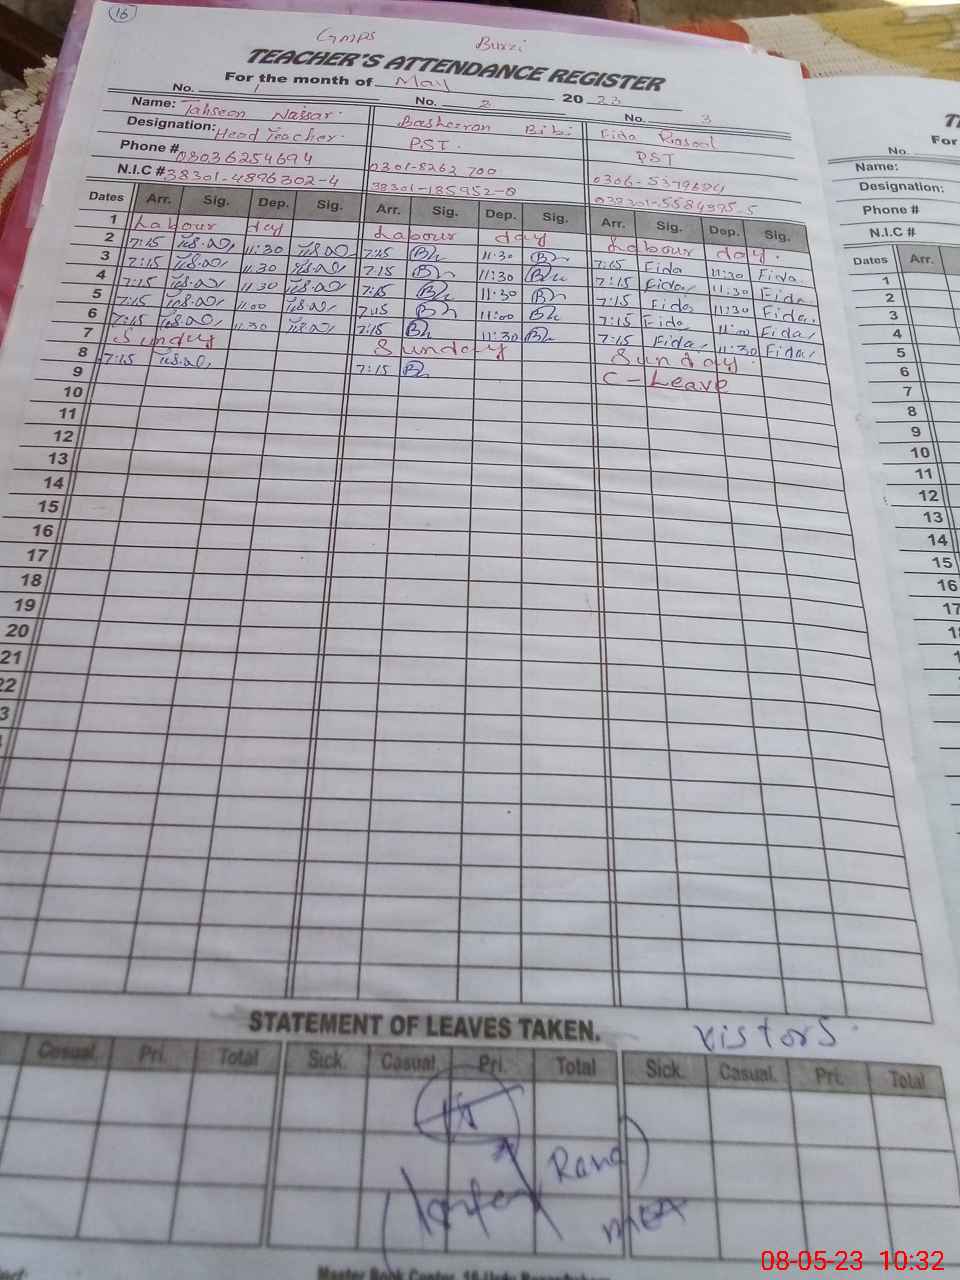 16
GMPS Buxzi
TEACHER'S ATTENDANCE REGISTER
For the month of May 2023
No. 1 No. 2 No. 3
Name: Tahseen Basheeran Bibi Fida Rasool
Designation: Head Teacher. PST. PST
Phone # 03036254694 0301-8262700
N.I.C # 38301-4896302-4
Dates Arr. Sig. Dep. Sig. Arr. Sig. Dep. Sig. Arr. Sig. Dep. Sig.
1 Labour day Labour day Labour day.
2 7:15 11:30 7:15 11:30 7:15 Fida 11:30 Fida
3 7:15 11:30 7:15 11:30 7:15 Fida 11:30 Fida
4 7:15 11:30 7:15 11:30 7:15 Fida 11:30 Fida
5 7:15 11:00 7:15 11:00 7:15 Fida 11:00 Fida
6 7:15 11:30 7:15 11:30 7:15 Fida 11:30 Fida
7 Sunday Sunday Sunday
8 7:15 7:15 C-Leave
9
10
11
12
13
14
15
16
17
18
19
20
21
22
3
STATEMENT OF LEAVES TAKEN.
vistors.
Casual. Pri. Total Sick. Casual. Pri. Total Sick. Casual. Pri. Total
Rana
MEA
For
No.
Name:
Designation:
Phone #
N.I.C #
Dates Arr.
1
2
3
4
5
6
7
8
9
10
11
12
13
14
15
16
17
08-05-23 10:32